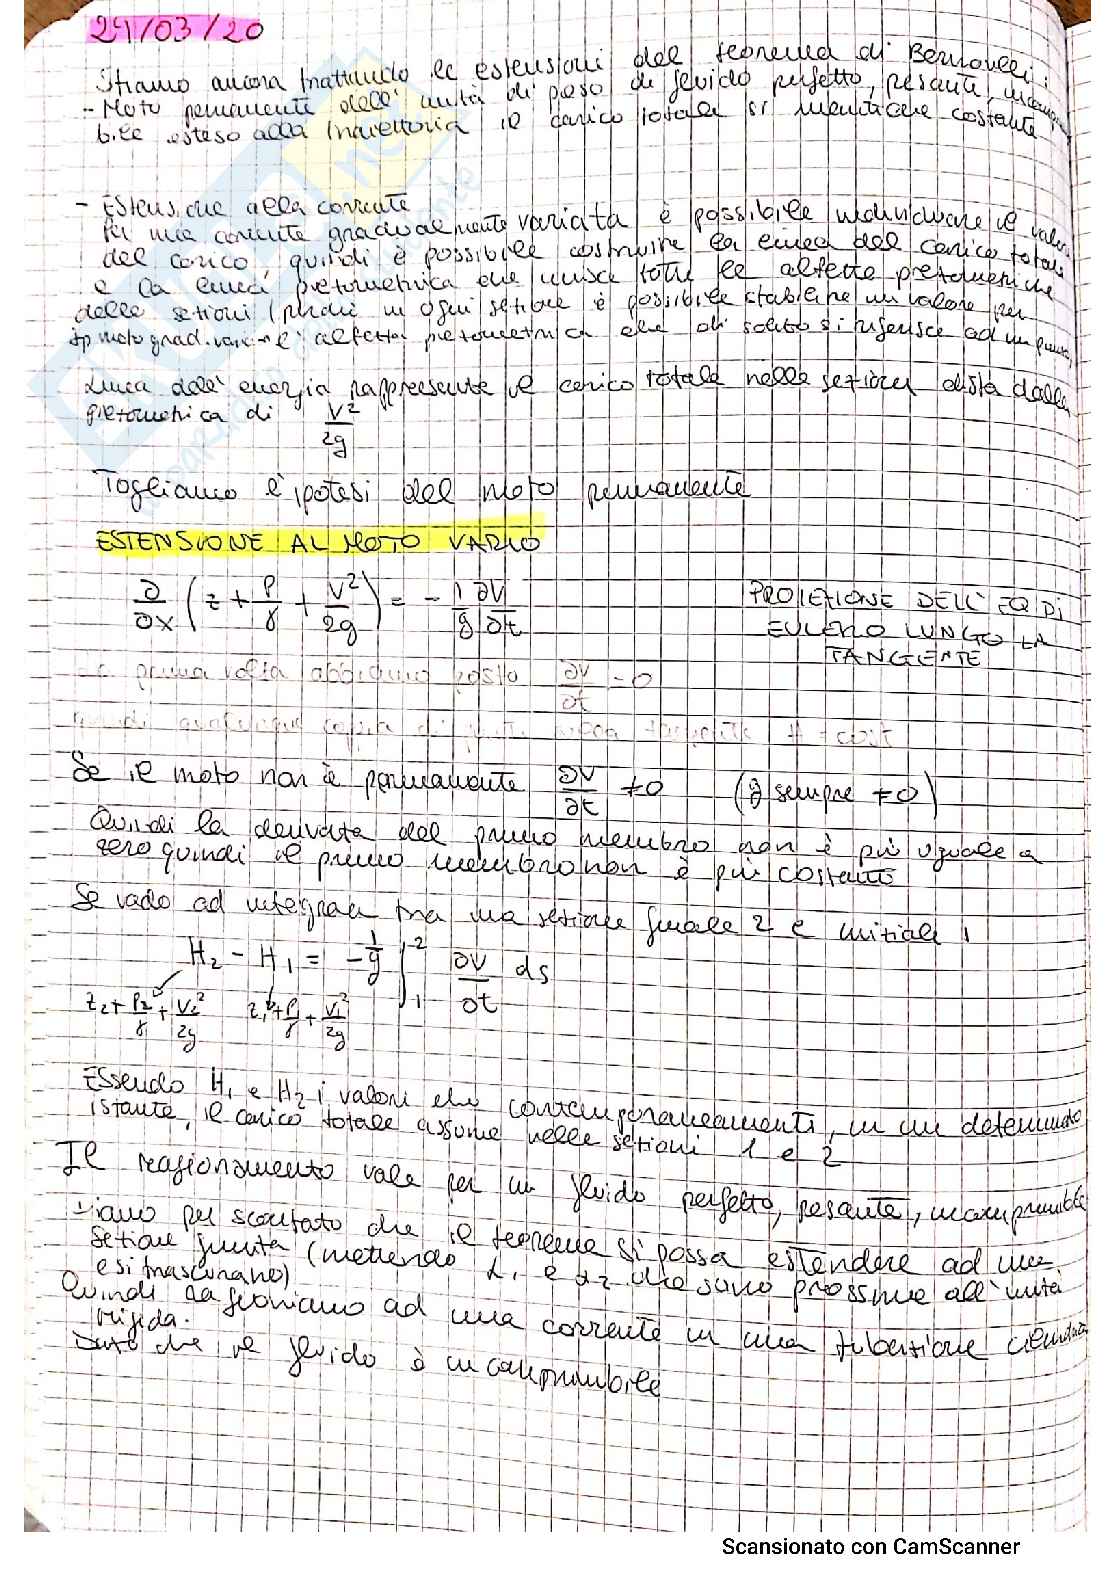 24/03/20
Stiamo ancora trattando le estensioni del teorema di Bernoulli:
- Moto permanente dell'unità di peso di fluido perfetto, pesante, incompri
bile esteso alla traiettoria il carico totale si mantiene costante
- Estensione alla corrente
Per una corrente gradualmente variata è possibile individuare il valore
del carico, quindi è possibile costruire la linea del carico totale
e la linea piezometrica che unisce tutte le altezze piezometriche
delle sezioni (perché in ogni sezione è possibile stabilire un valore per
Ip moto grad. vario l'altezza piezometrica che di solito si riferisce ad un punto)
Linea dell'energia rappresenta il carico totale nelle sezioni dista dalla
piezometrica di V²/2g
Togliamo l'ipotesi del moto permanente
ESTENSIONE AL MOTO VARIO
∂/∂x (z + p/γ + V²/2g) = - 1/g ∂V/∂t
PROIEZIONE DELL'EQ DI
EULERO LUNGO LA
TANGENTE
La prima volta abbiamo posto ∂V/∂t = 0
quindi qualunque coppia di punti H = cost
Se il moto non è permanente ∂V/∂t ≠0 (g sempre ≠0)
Quindi la derivata del primo membro non è più uguale a
zero quindi il primo membro non è più costante
Se vado ad integrare tra una sezione finale 2 e iniziale 1
H₂ - H₁ = - 1/g ∫₁² ∂V/∂t ds
z₂+p₂/γ+V₂²/2g z₁+p₁/γ+V₁²/2g
Essendo H₁ e H₂ i valori che contemporaneamente, in un determinato
istante, il carico totale assume nelle sezioni 1 e 2
Il ragionamento vale per un fluido perfetto, pesante, incomprimibile
Diamo per scontato che il teorema si possa estendere ad una
sezione finita (mettendo α₁ e α₂ che sono prossime all'unità
e si trascurano)
Quindi ragioniamo ad una corrente in una tubazione cilindrica
rigida.
Dato che il fluido è incomprimibile
Scansionato con CamScanner